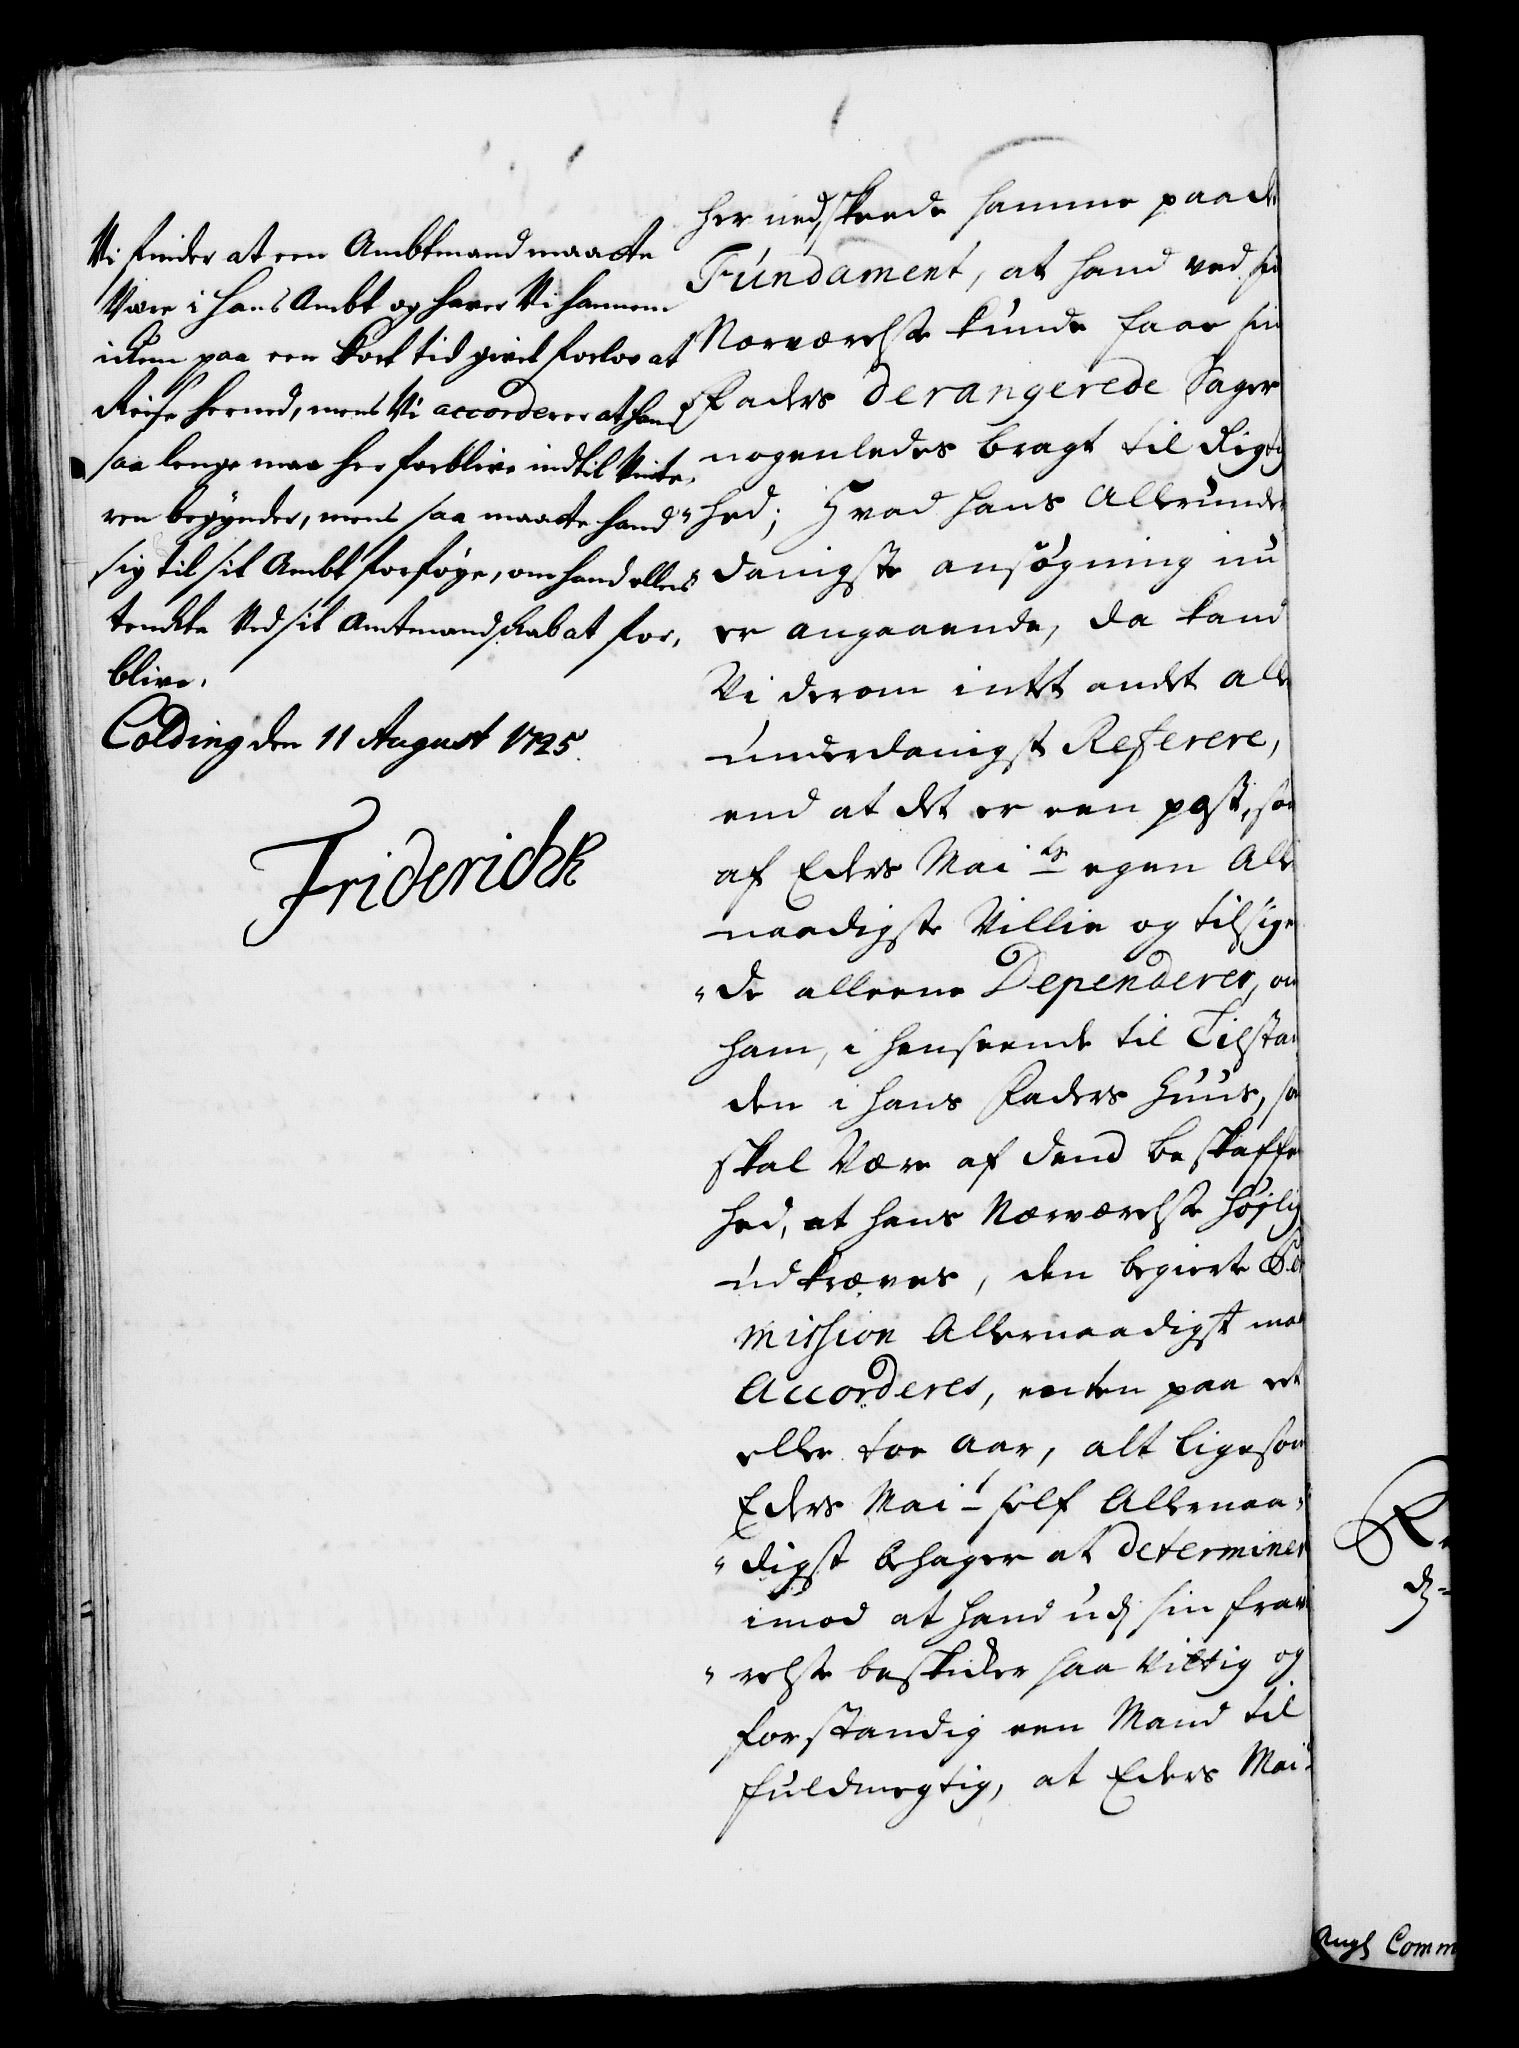 Vi finder at een Ambtmand maatte
Være i hans Ambt og haver Vi hannem
ickun paa een kort tid givet forlov at
Reise herned, mens Vi accorderer at hand
saa lenge maa her forblive indtil Vinte,
ren begynder, mens saa maatte hand
sig til sit Ambt forføye, om hand ellers
tenckte Ved sit Amtmandskab at for,
blive.
Colding den 11 August 1725.
Friderich R
her ned, skeede samme paa de
Fundament, at hand ved sin
Nærværelse kunde faae sin
Faders derangerede Sager
nogenledes bragt til Rigtig
"hed; Hvad hans Allerunder
danigste ansøgning nu
er angaaende, da kand
Vi derom intet andet aller
underdanigst Referere,
end at det er een post, som
af Eders Mai ts egen Aller
naadigste Villie og tilsigen
"de alleene Dependerer, om
ham, i henseende til Tilstan
den i hans Faders Huus, som
skal Være af dend beskaffen
hed, at hans Nærværelse højlig
udkræves, den begierte Per
mission Allernaadigst maa
Accorderes, enten paa et
eller toe Aar, alt ligesom
Eders Mai t self Allernaa,
"digst behager at determinere
imod at hand udj sin fravæ
"relse beskicker saa Vittig og
forstandig een Mand til
fuldmegtig, at Eders Mai t
R
d
Rugs Comm